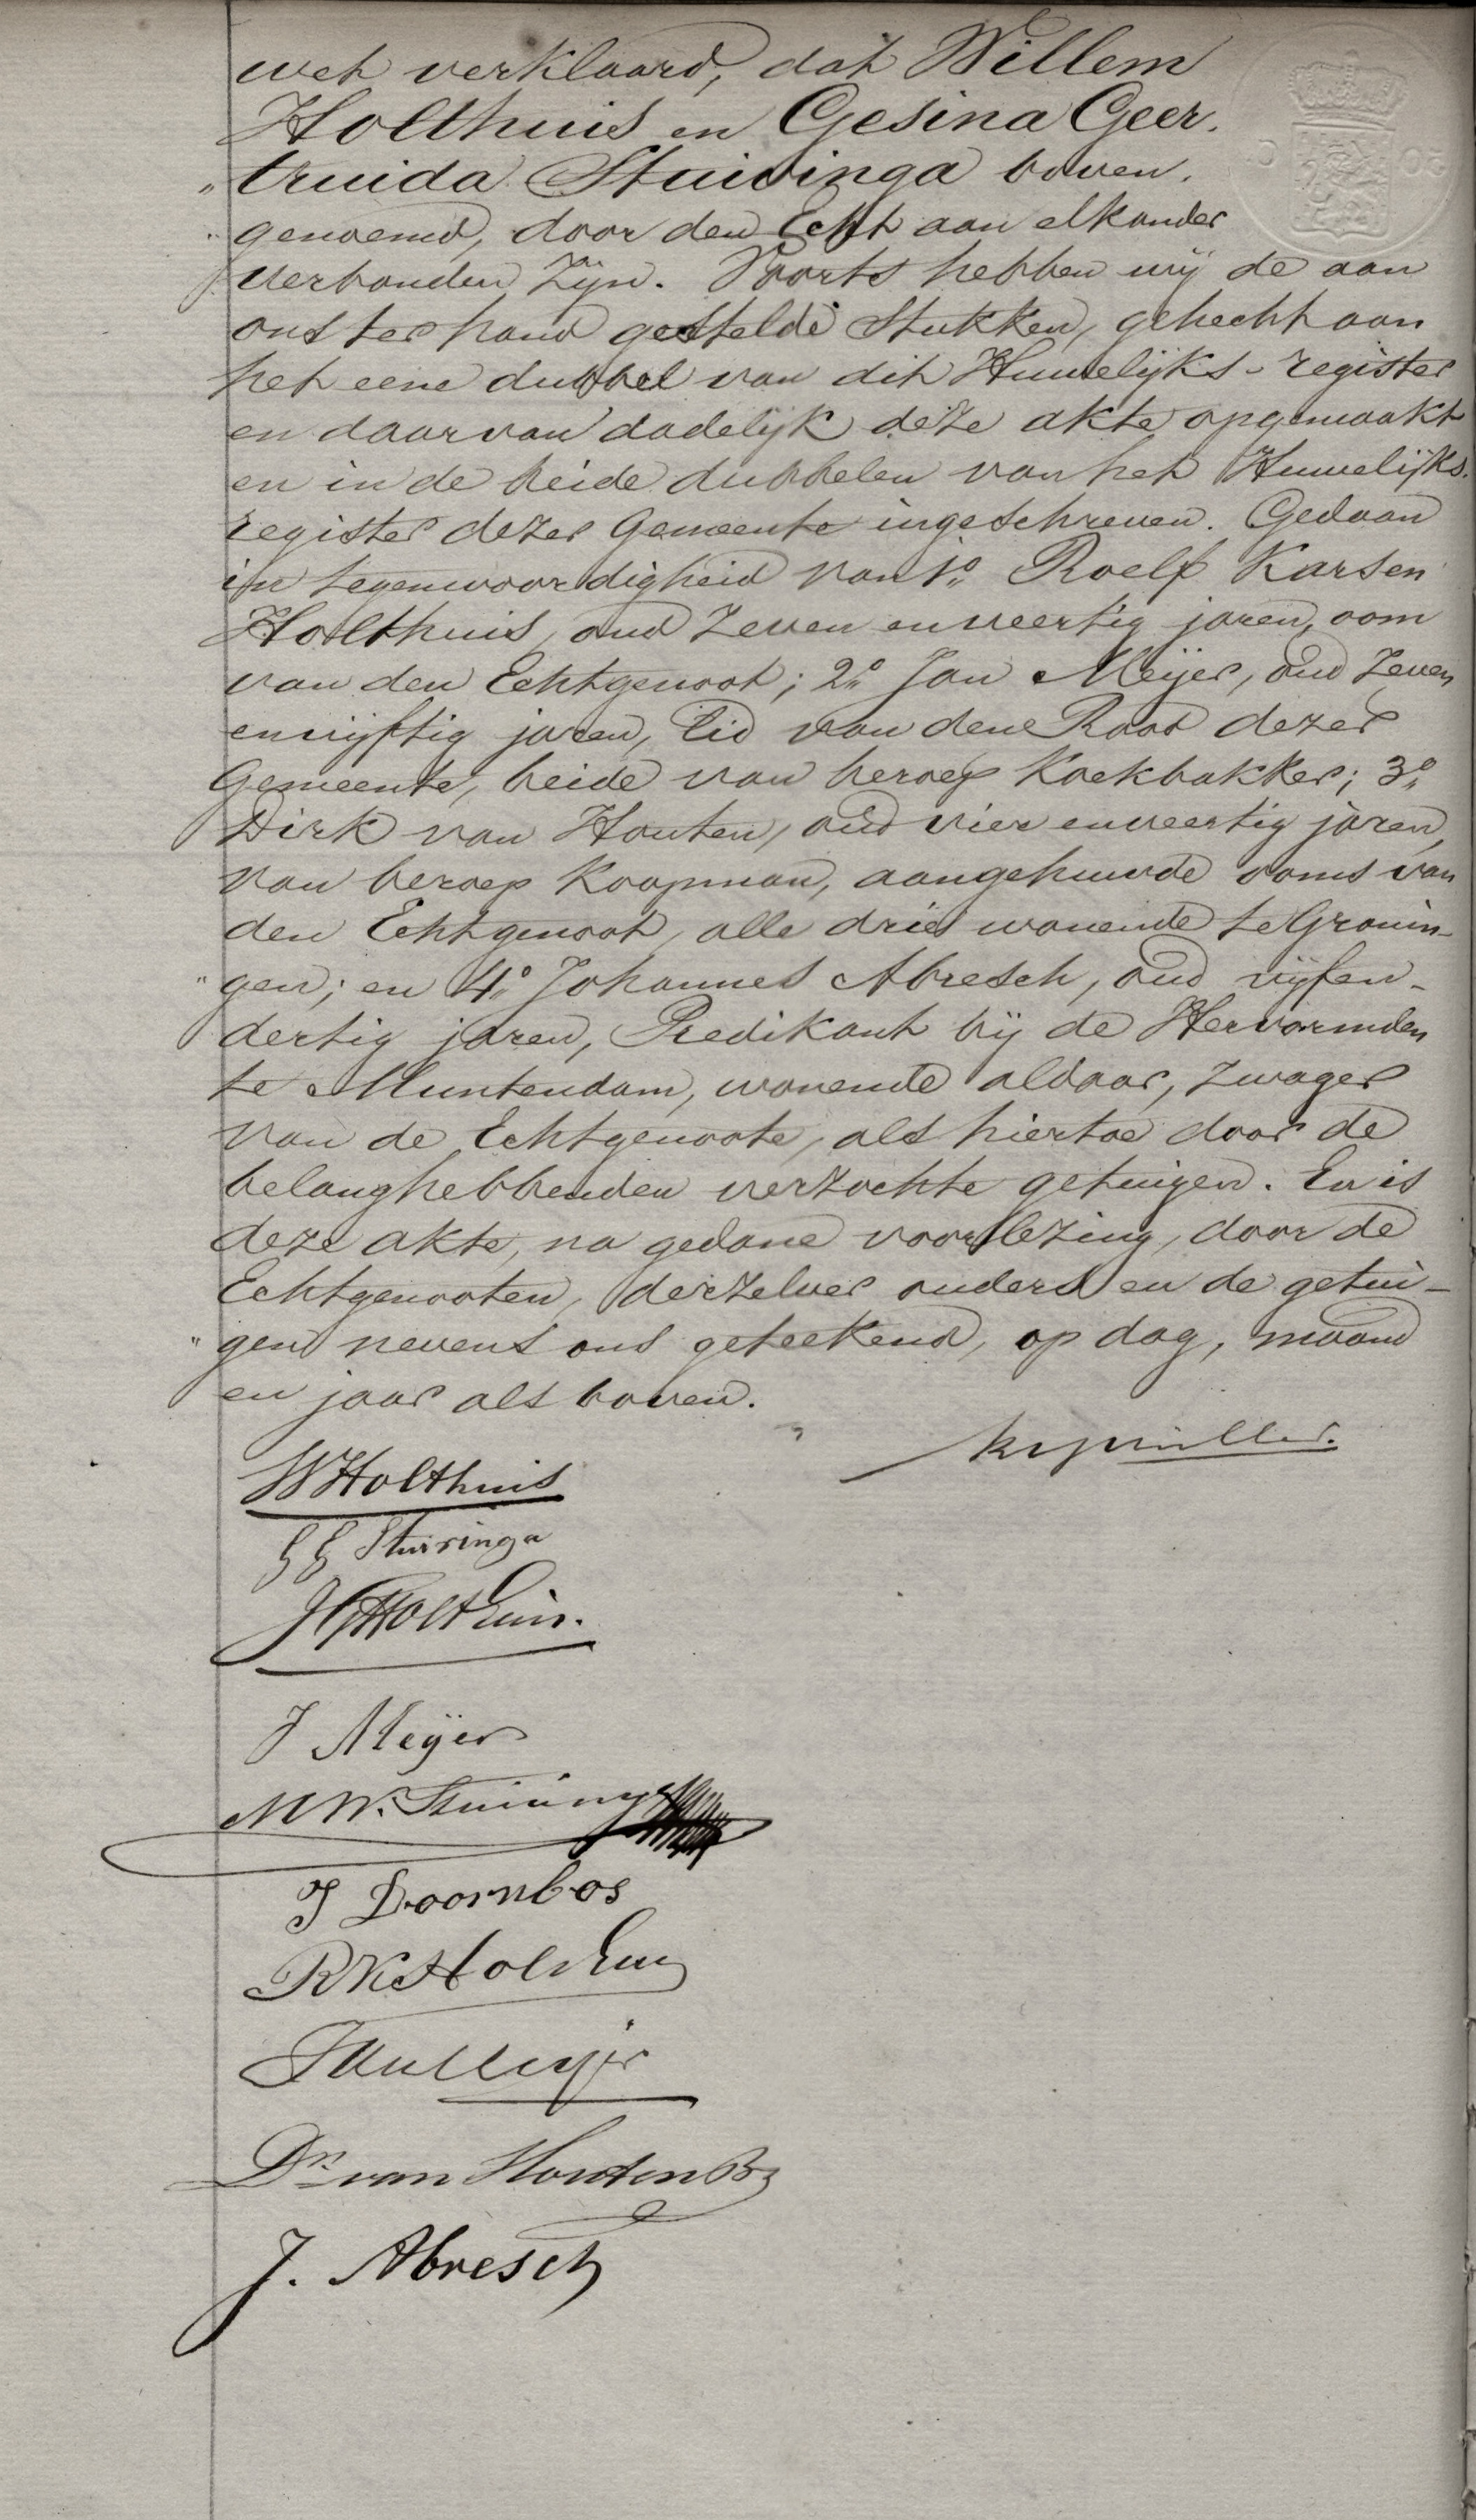 wet verklaard, dat Willem
Holthuis en Gesina Geer,
„truida Stuivinga boven,
„genoemd, door den Echt aan elkander
verbonden zijn. Voorts hebben wij de aan
ons ter hand gestelde Stukken, gehecht aan
het eene dubbel van dit Huwelijks-register
en daarvan dadelijk deze akte opgemaakt
en in de beide dubbelen van het Huwelijks,
register dezer Gemeente ingeschreven. Gedaan
in tegenwoordigheid van 1º Roelf Karsen
Holthuis, oud zeven en veertig jaren, oom
van den Echtgenoot; 2º Jan Meijer, oud zeven
en vijftig jaren, Lid van den Raad dezer
Gemeente, beide van beroep Koekbakker; 3º
Dirk van Houten, oud vier en veertig jaren,
van beroep Koopman, aangehuwde ooms van
den Echtgenoot, alle drie wonende te Gronin-
„gen; en 4º Johannes Abresch, oud vijf en-
dertig jaren, Predikant bij de Hervormden
te Muntendam, wonende aldaar, zwager
van de Echtgenoote, als hiertoe door de
belanghebbenden verzochte getuigen. En is
deze akte, na gedane voorlezing, door de
Echtgenooten, derzelver ouders en de getui-
„gen nevens ons geteekend, op dag, maand
en jaar als boven.
W Holthuis
G G Stuivinga
J Meijer
M W. Stuivinga
J Doornbos
R K Holthuis
Dk van Houten Bz
J. Abresch